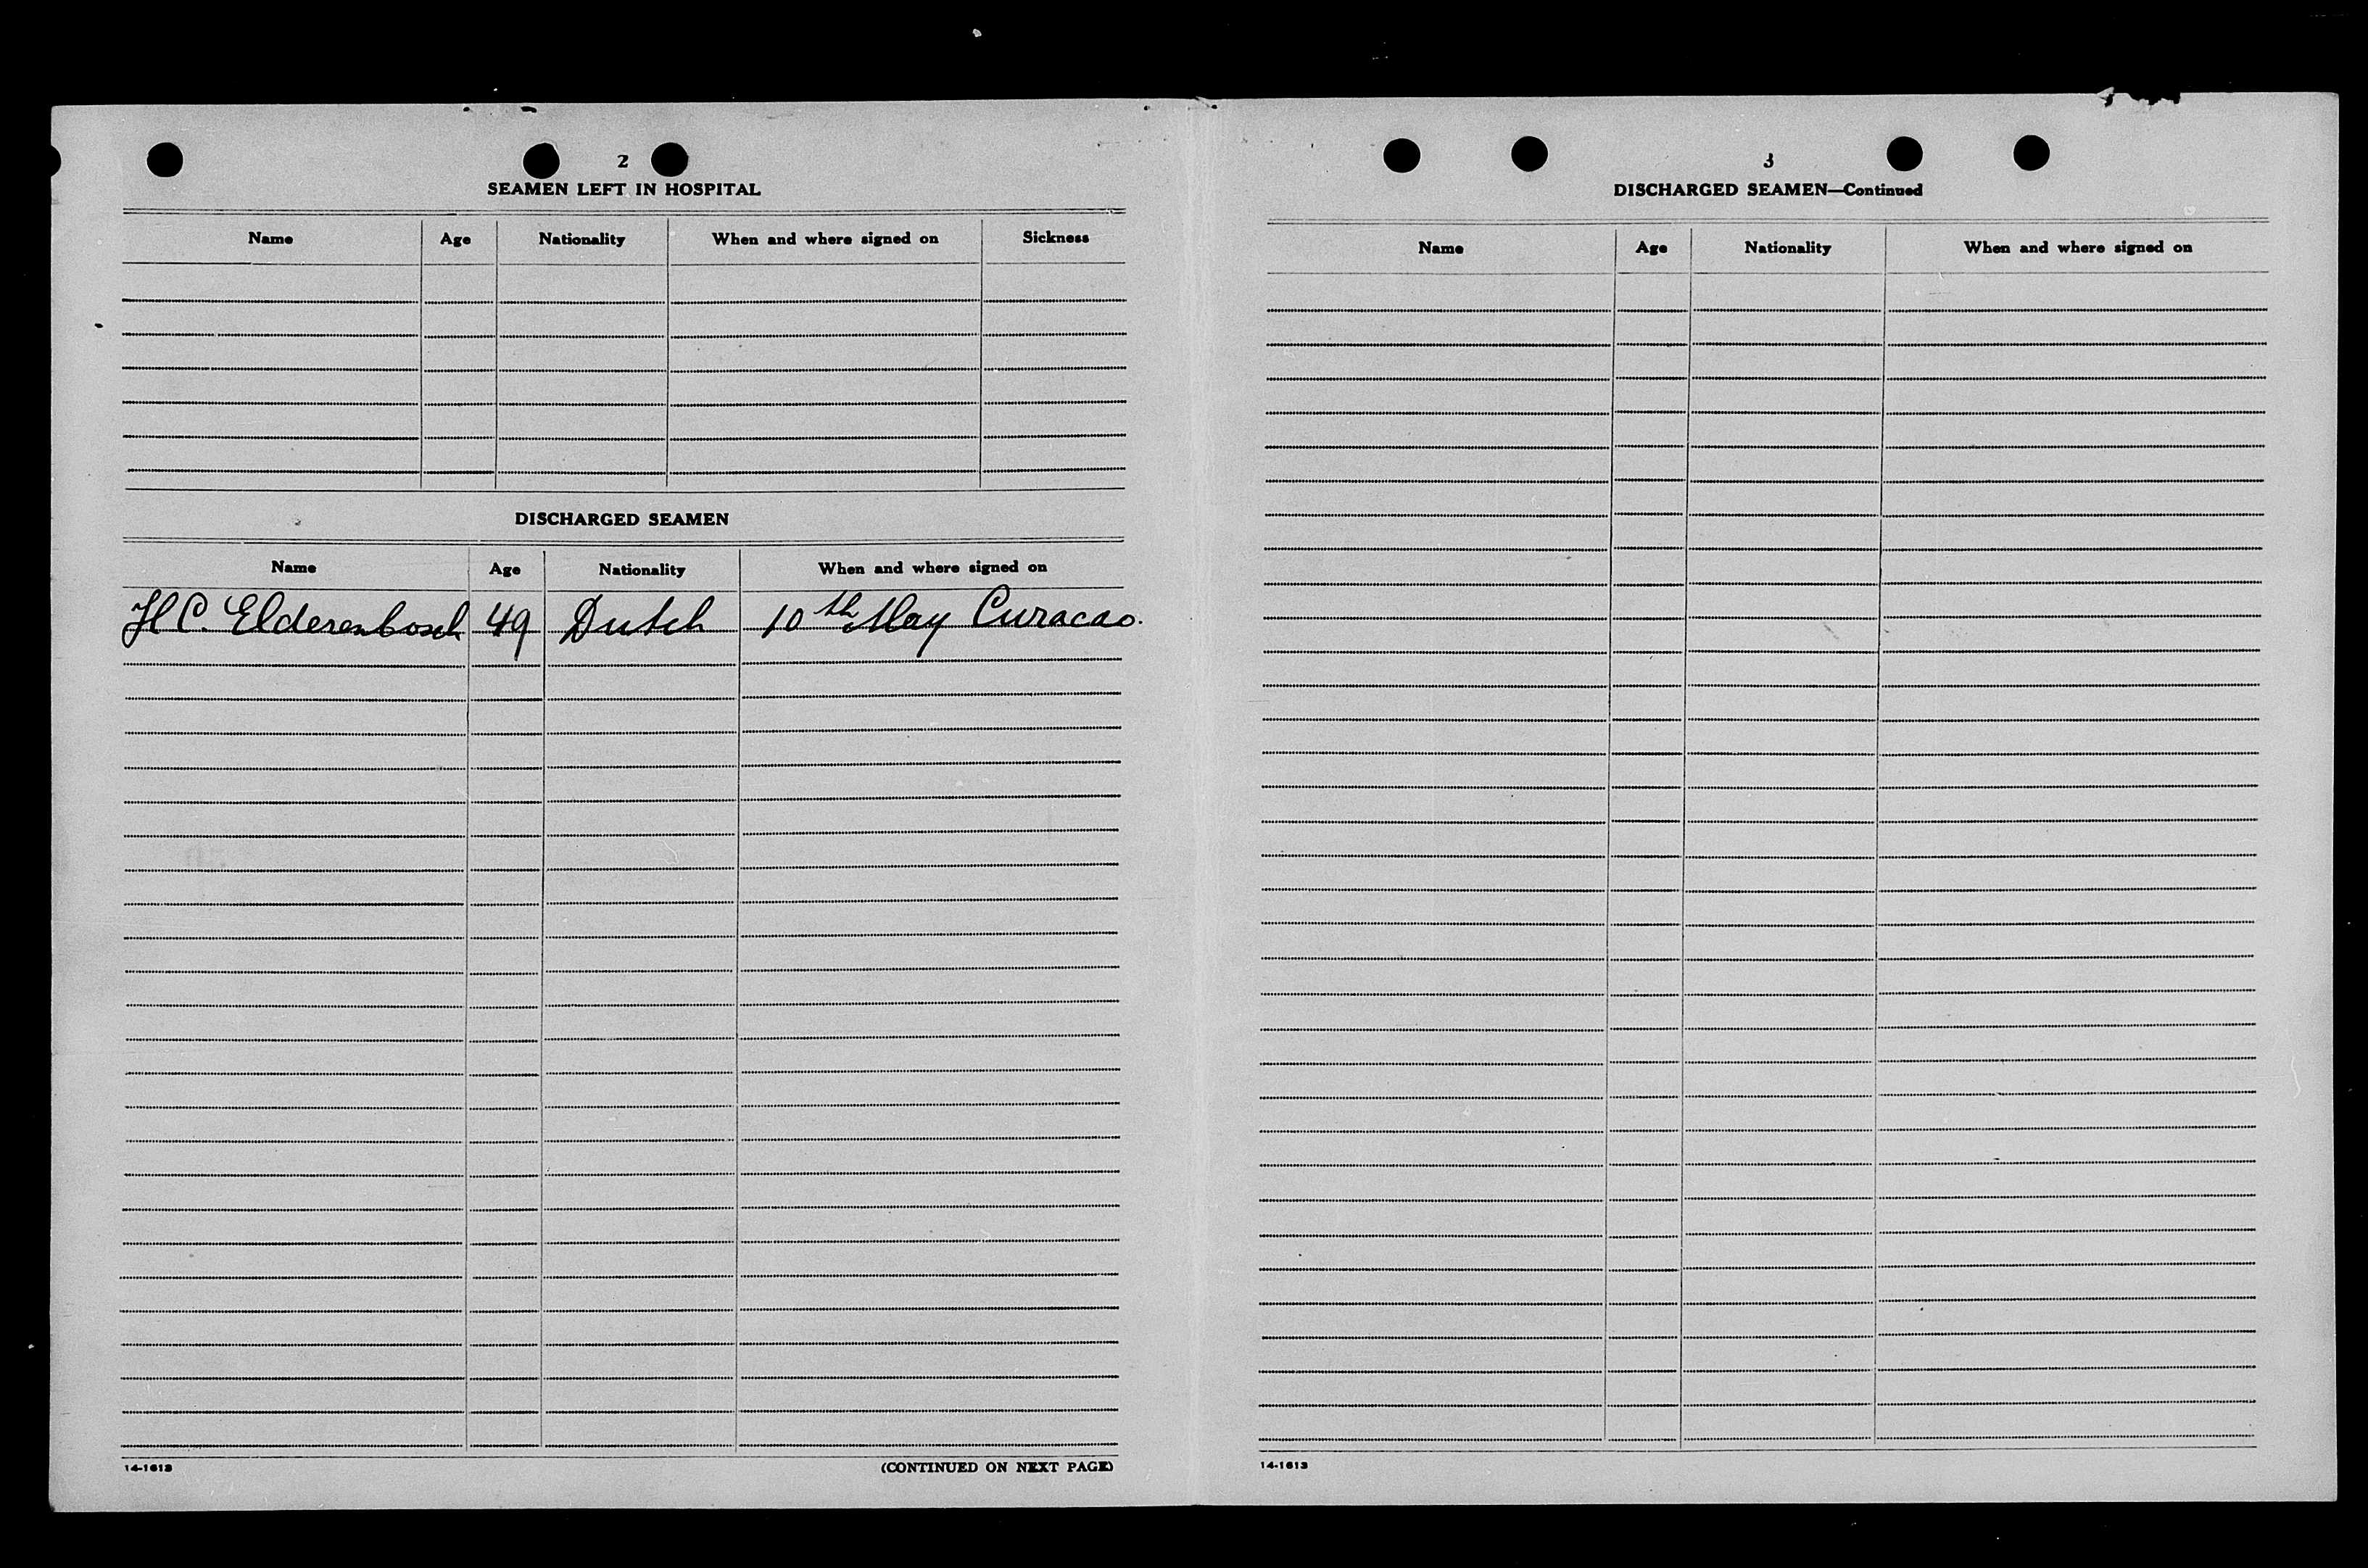 2
SEAMEN LEFT IN HOSPITAL
Name Age Nationality When and where signed on Sickness
DISCHARGED SEAMEN
Name Age Nationality When and where signed on
H C. Elderenbosch 49 Dutch 10th May Curacao.
14-1613 (CONTINUED ON NEXT PAGE)
3
DISCHARGED SEAMEN—Continued
Name Age Nationality When and where signed on
14-1613